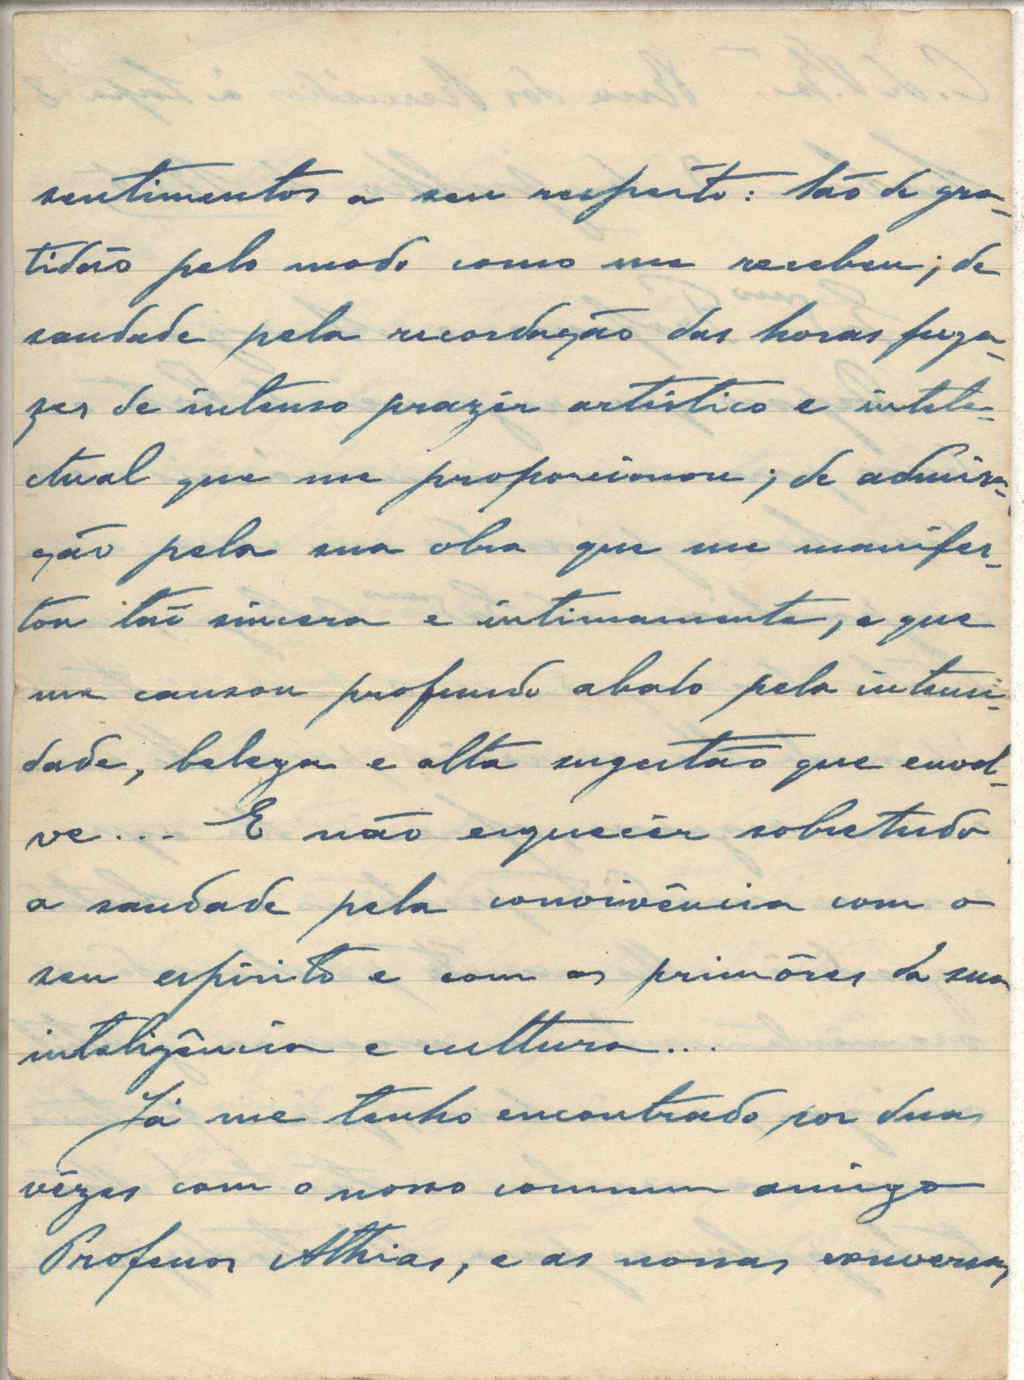 sentimentos a seu respeito: são de gra-
tidão pelo modo como me recebeu; de
saudade pela recordação das horas fuga-
zes de intenso prazêr artístico e intele-
ctual que me proporcionou; de admira-
ção pela sua obra que me manifes-
tou tão sincera e intimamente, e que
me causou profundo abalo pela intensi-
dade, beleza e alta sugestão que envol-
ve... E não esquecêr sobretudo
a saudade pela convivência com o
seu espírito e com os primôres da sua
inteligência e cultura...
Já me tenho encontrado por duas
vêzes com o nosso commum amigo
Professor Athias, e as nossas conversas